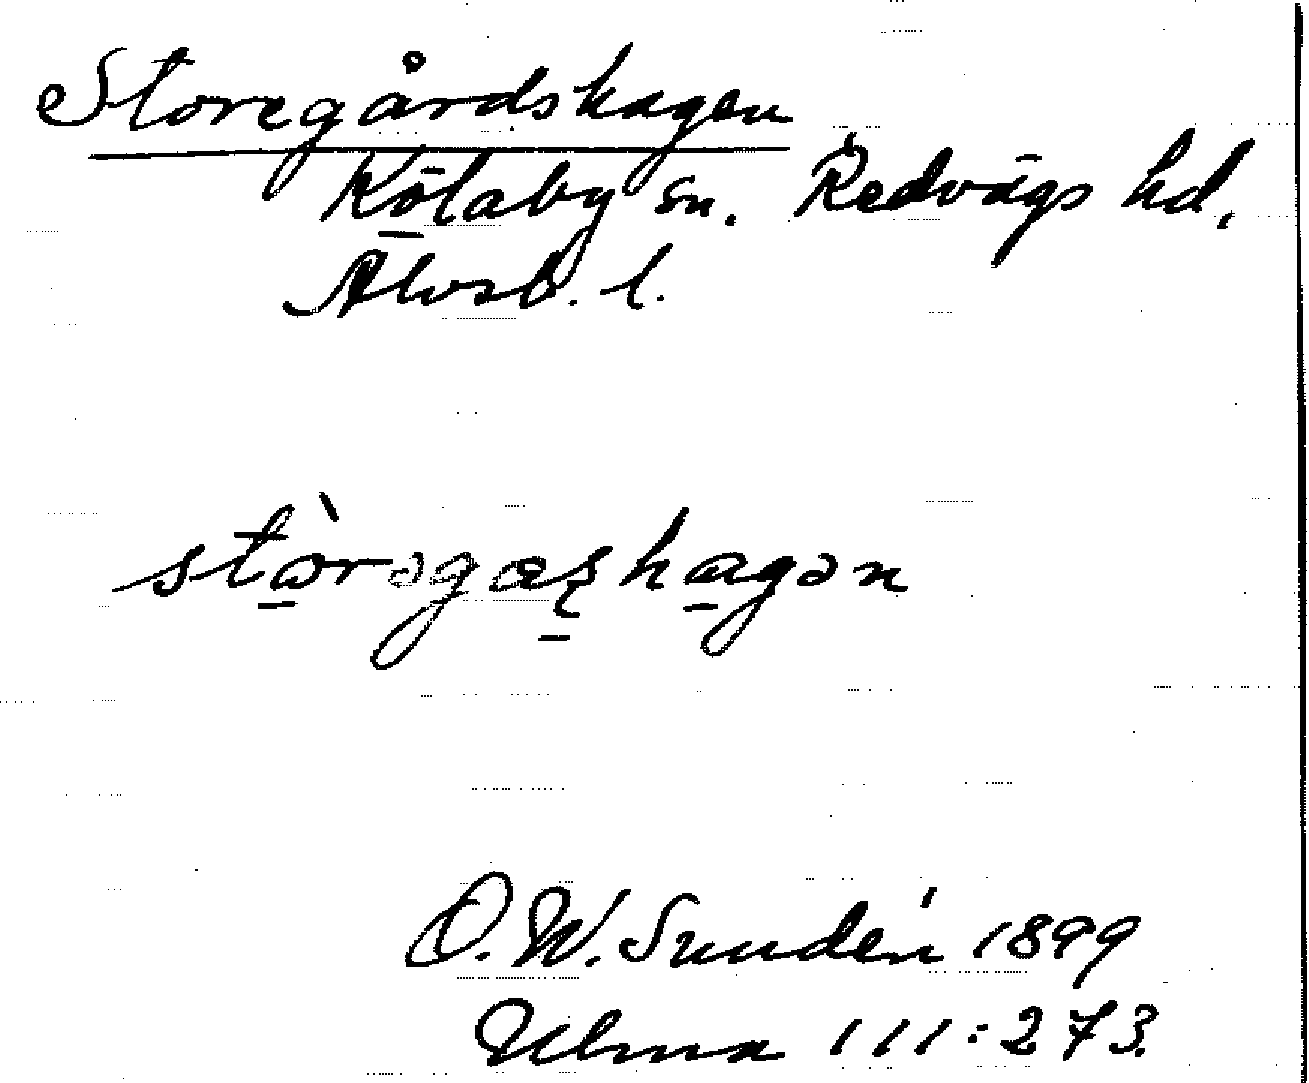 Storegårdshagen
Kölaby sn. Redvägs hd.
Älvsb. l.
stòrəgaʂhagən
O. W. Sundén 1899
Ulma 111:273.